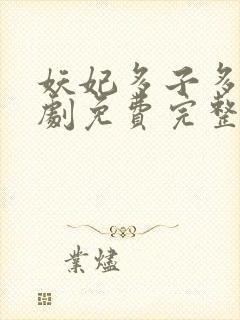 妖妃多子多
劇免費完整
業燼